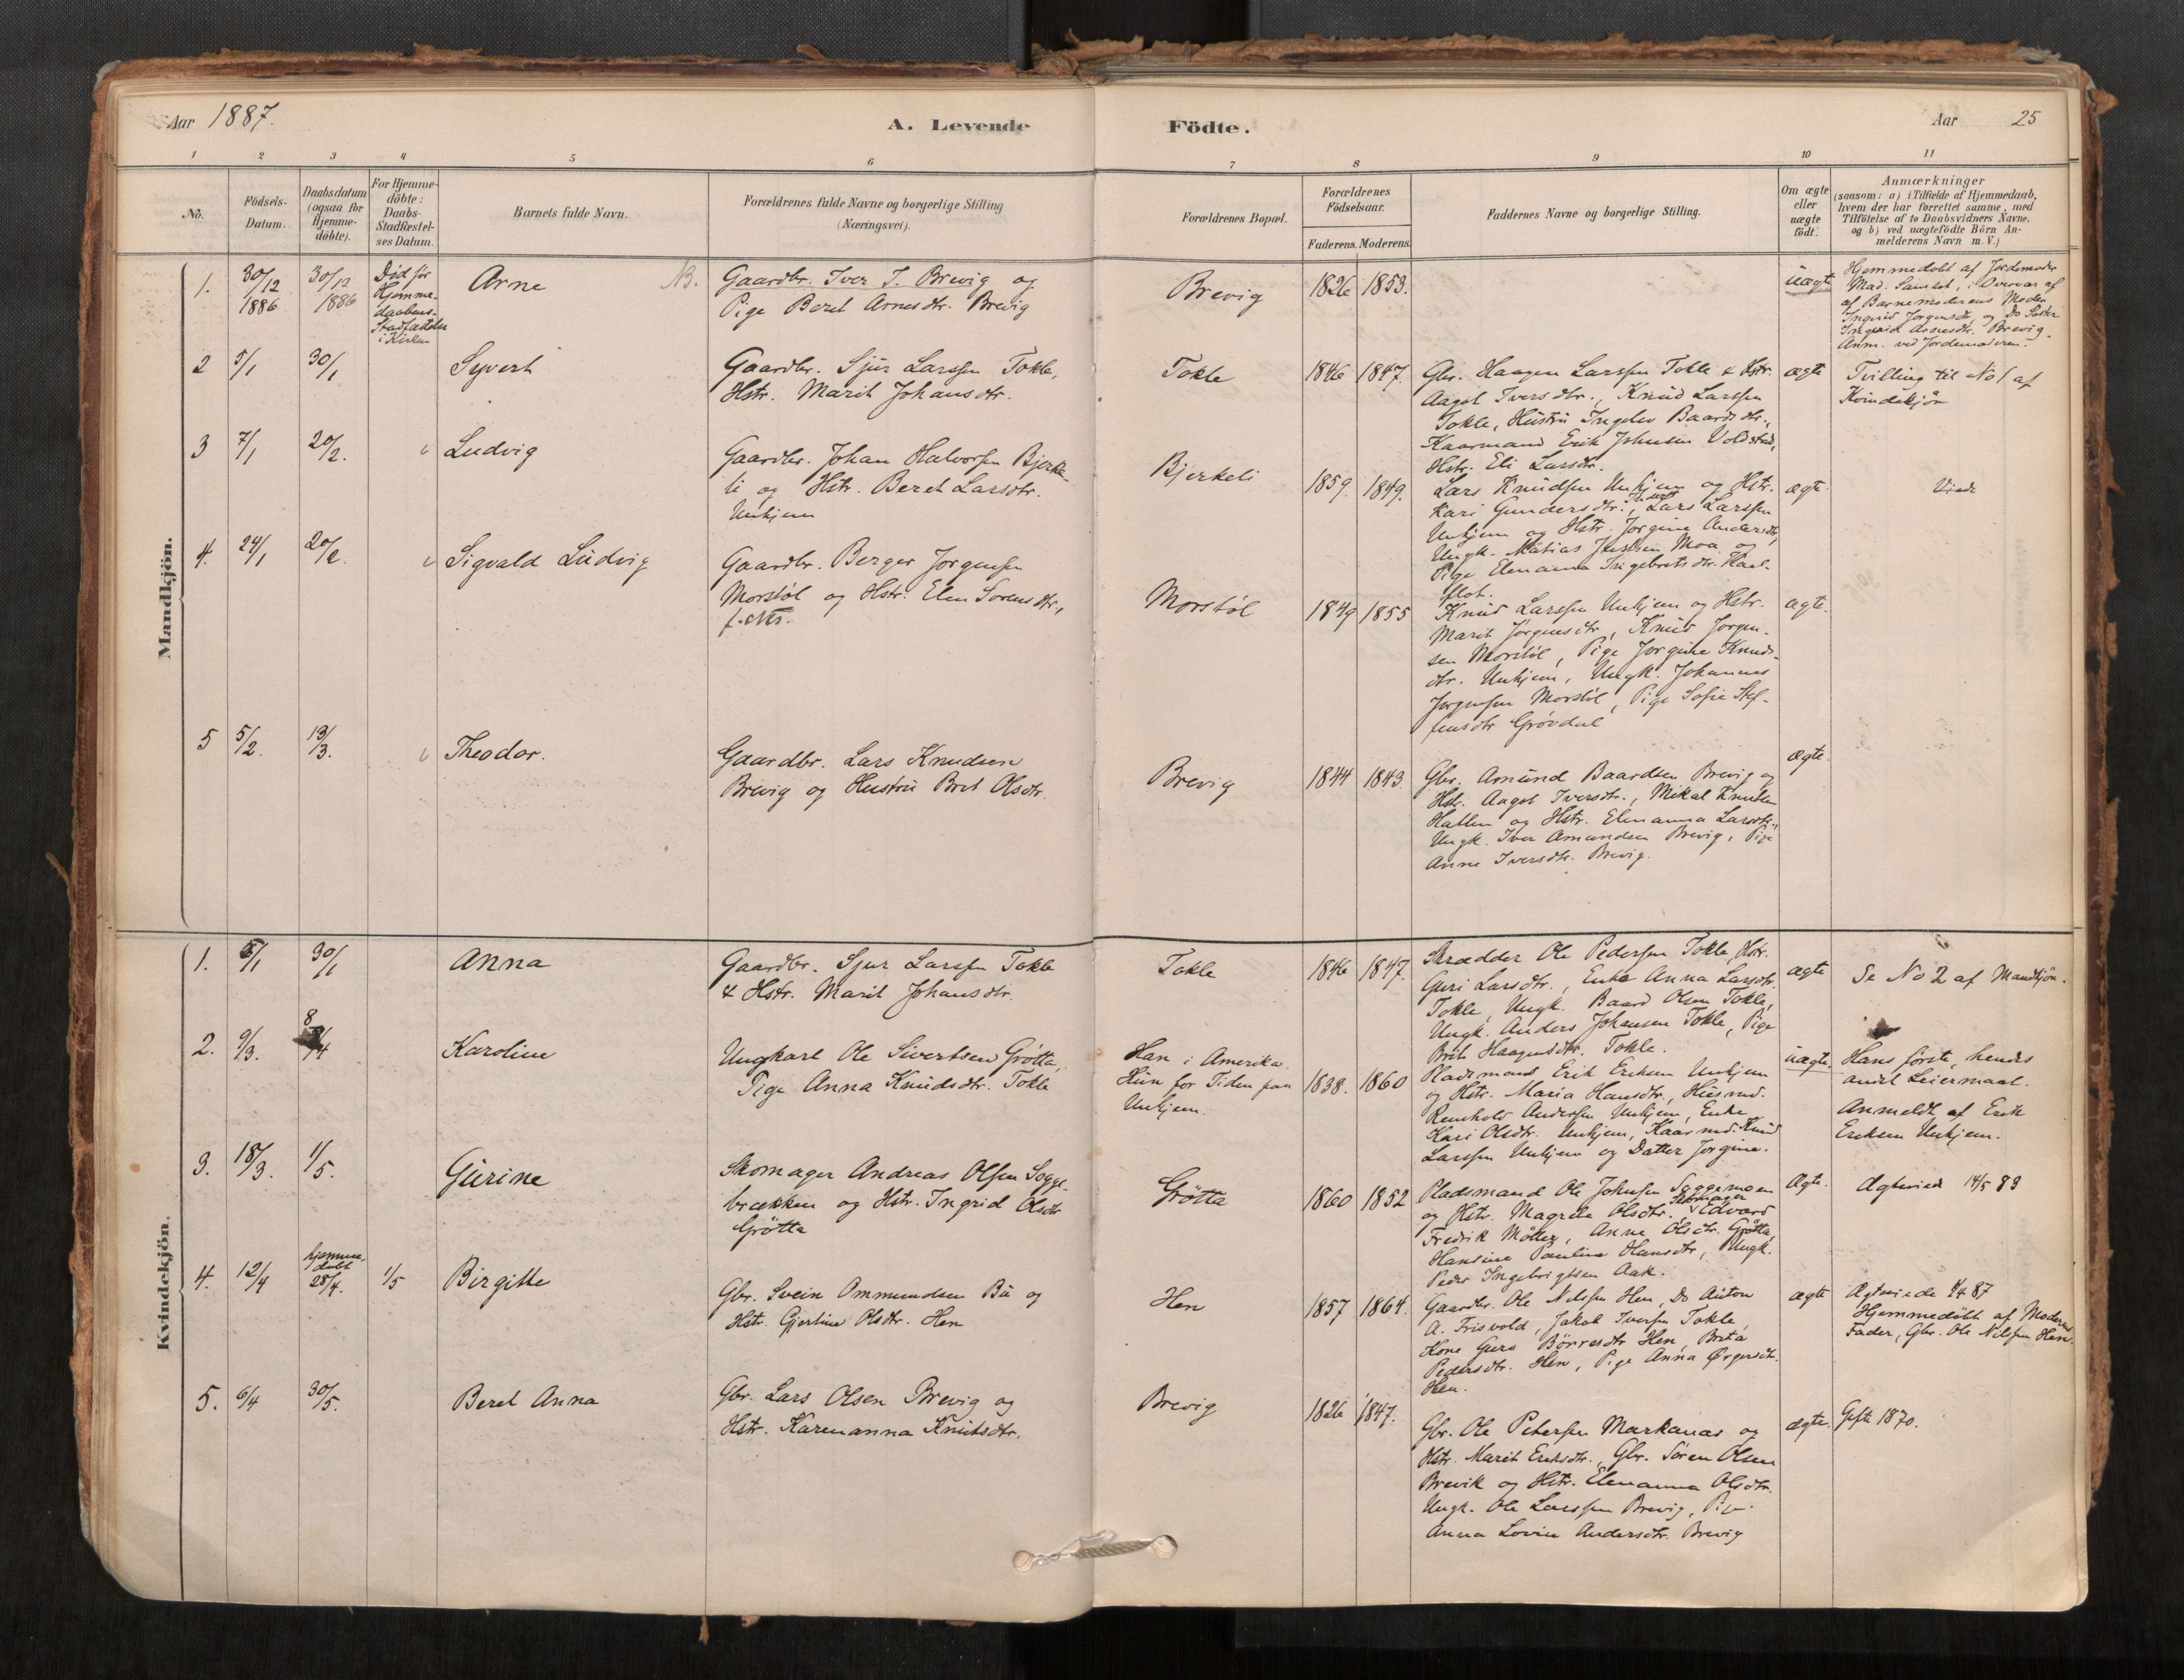 Aar 1887.
A. Levende
Födte.
Aar 25
1 2 3 4 5 6 7 8 9 10 11
No.
Födsels-
Datum.
Daabsdatum
(ogsaa for
Hjemme-
döbte).
For Hjemme-
döbte:
Daabs-
Stadfæstel-
ses Datum.
Barnets fulde Navn.
Forældrenes fulde Navne og borgerlige Stilling
(Næringsvei).
Forældrenes Bopæl.
Forældrenes
Födselsaar.
Faderens. Moderens.
Faddernes Navne og borgerlige Stilling.
Om ægte
eller
uægte
födt.
Anmærkninger
(saasom: a) i Tilfælde af Hjemmedaab,
hvem der har forrettet samme, med
Tilföielse af to Daabsvidners Navne.
og b) ved uægtefödte Börn An-
melderens Navn m. V.)
Mandkjön.
1.
30/12
1886
30/12
1886
Död för
Hjemme-
daabens
Stadfæstelse
i Kirken
Arne
Gaardbr. Iver I. Brevig og
Pige Beret Arnesdtr. Brevig
Brevig
1826 1853.
uægte
Hjemmedöbt af Jordemoder
Mad. Samset, i Overvær af
af Barnemoderens Moder
Ingerid Jorgensdtr. og Do Söster
Ingerid Arnesdtr. Brevig.
Anm. ved Jordemoderen.
2 5/1 30/1
Syvert
Gaardbr. Sjur Larssen Tokle,
Hstr. Marit Johansdtr.
Tokle
1846 1847.
Gbr. Haagen Larssen Tokle & Hstr.
Aagot Iversdtr., Knud Larssen
Tokle, Hustru Ingelev Baardsdtr.,
Kaarmand Erik Johnsen Voldstad,
Hstr. Eli Larsdtr.
ægte
Tvilling til No 1 af
Kvindekjön
3 7/1 20/2.
Ludvig
Gaardbr. Johan Halvorsen Bjerke-
li og Hstr. Beret Larsdtr.
Unhjem
Bjerkeli
1859. 1849.
Lars Knudsen Unhjem og Hstr.
Kari Gundersdtr., Lars Larssen
Unhjem og Hstr. Jorgine Andersdtr,
Ungk. Matias Moa og
Pige Elenanna Ingebretsdtr. Kaal-
flot.
ægte.
Viede
4. 24/1 20/2.
Sigvald Ludvig
Gaardbr. Berger Jorgensen
Morstöl og Hstr. Elen Sorensdtr,
Morstöl
1849 1855
Knud Larssen Unhjem og Hstr.
Marit Jörgensdtr, Knud Jorgen-
sen Morstöl, Pige Jorgine Knuds-
dtr. Unhjem, Ungk. Johannes
Jorgensen Morstöl, Pige Sofie Stef-
fensdtr Grövdal
ægte.
5 5/2. 13/3.
Theodor.
Gaardbr. Lars Knudsen
Brevig og Hustru Bret Olsdtr.
Brevig
1844 1843.
Gbr. Amund Baardsen Brevig og
Hstr. Aagot Iversdtr., Mikal Knutsen
Hatlen og Hstr. Elenanna Larsdtr.,
Ungk. Iver Amundsen Brevig, Pige
Anne Iversdtr. Brevig.
ægte.
Kvindekjön.
1. 5/1 30/1
Anna
Gaardbr. Sjur Larssen Tokle
& Hstr. Marit Johansdtr.
Tokle
1846 1847.
Skrædder Ole Pedersen Tokle, Hstr.
Guri Larsdtr., Enke Anna Larsdtr.
Tokle, Ungk. Baard Olsen Tokle,
Ungk. Anders Johansen Tokle, Pige
Brit Haagensdtr. Tokle.
ægte
Se No 2 af Mandkjön.
2. 9/3. 8/4
Karoline
Ungkarl Ole Sivertsen Grötta,
Pige Anna Knudsdtr. Tokle
Han i Amerika.
Hun for Tiden paa
Unhjem.
1838. 1860
Pladsmand Erik Eriksen Unhjem
og Hstr. Maria Hansdtr., Husmd.
Reinholt Andersen Unhjem, Enke
Kari Olsdtr. Unhjem, Kaarmd. Knud
Larssen Unhjem og Datter Jorgine.
uægte.
Hans förste, hendes
andet Leiermaal.
Anmeldt af Erik
Eriksen Unhjem.
3. 18/3. 1/5.
Gurine
Skomager Andreas Olsen Sogge-
brækken og Hstr. Ingrid Olsdtr
Grötta
Grötta
1860 1852
Pladsmand Ole Johnsen Soggemoen
og Hstr. Magrete Olsdtr. Skomager Edvard
Fredrik Möller, Anne Olsdtr. Grötta,
Hansine Pauline Hansdtr, Ungk.
Peder Ingebrigtsen Aak.
Ægte.
Ægteviede 14/5 83
4. 12/4
hjemme-
döbt
28/4.
1/5
Birgitte
Gbr. Svein Ommundsen Bö og
Hstr. Gjertine Olsdtr. Hen
Hen
1857 1864.
Gaardbr. Ole Nilssen Hen, Do Anton
A. Frisvold, Jakob Iversen Tokle,
Kone Guro Börresdtr Hen, Brita
Pedersdtr. Hen, Pige Anna Örgersdtr.
Hen.
ægte
Ægteviede 87
Hjemmedöbt af Moderens
Fader, Gbr. Ole Nilssen Hen.
5. 6/4 30/5.
Beret Anna
Gbr. Lars Olsen Brevig og
Hstr. Karenanna Knutsdtr.
Brevig
1826 1847.
Gbr. Ole Petersen Markanæs og
Hstr. Marit Eriksdtr., Gbr. Sören Olsen
Brevik og Hstr. Elenanna Olsdtr.
Ungk. Ole Larssen Brevig, Pige
Anna Lovise Andersdtr. Brevig
ægte.
Gifte 1870.